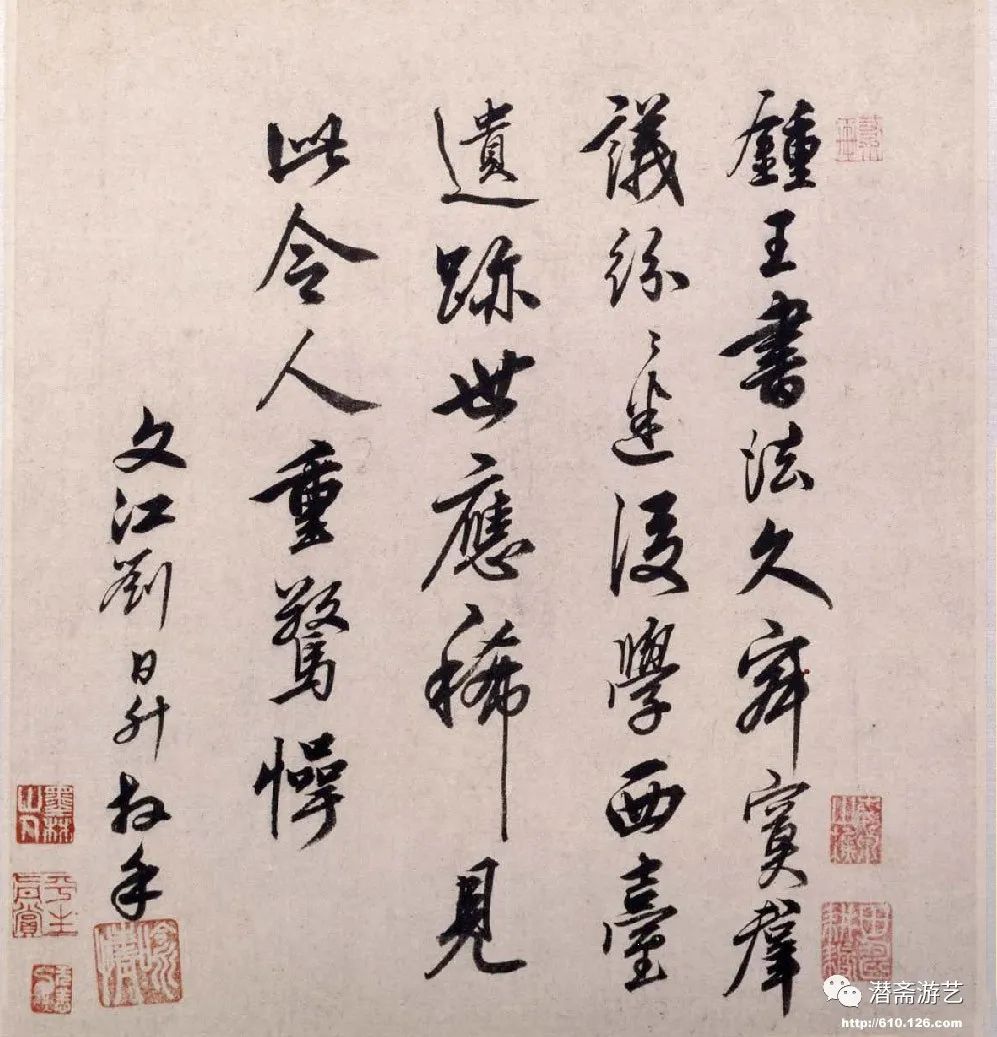 鍾王書法久寂寞羣
議紛〻迷後學西臺
遺跡世應稀見
此令人重驚愕
文江劉日升拜手
墨林山人
潜斋游艺
http://610.126.com